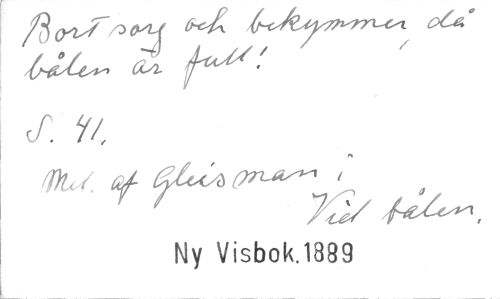 Bort sorg och bekymmer, då
bålen är full!
S. 41.
Mel. af Gleisman i
Vid bålen.
Ny Visbok.1889